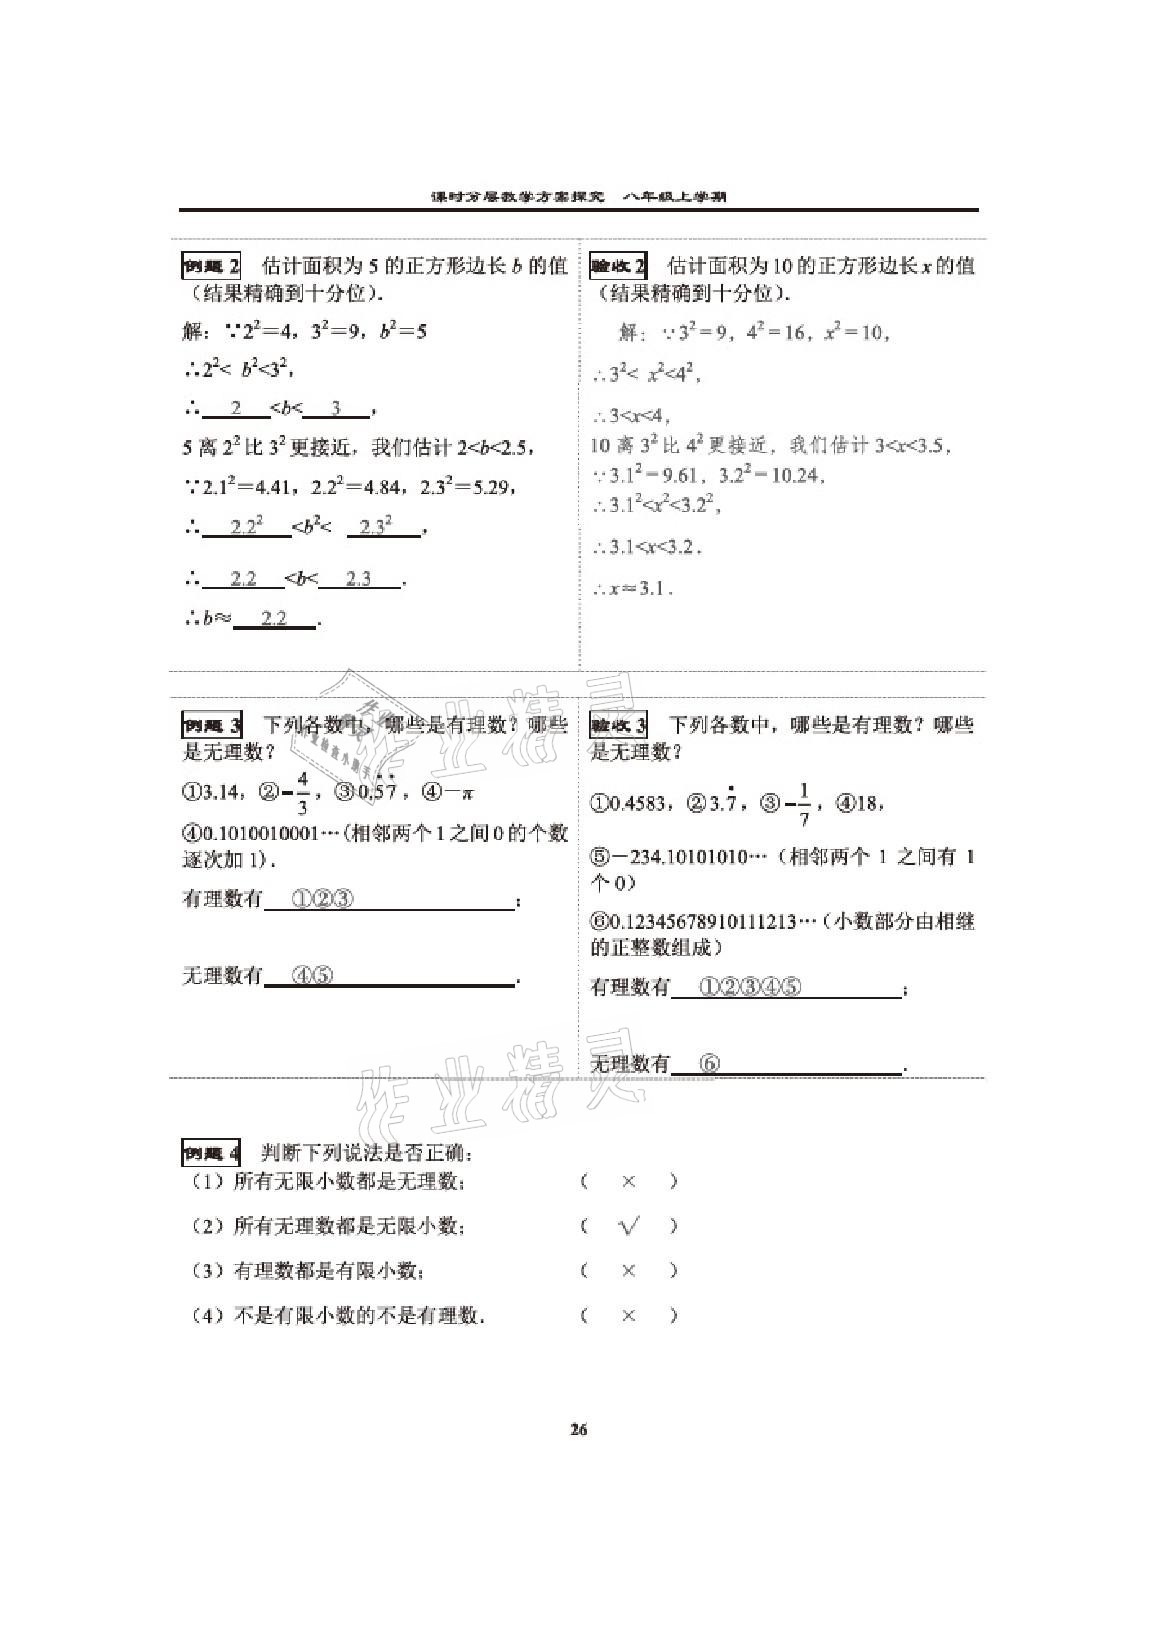 课时分层教学方案探究 八年级上学期
例题2 估计面积为 5 的正方形边长 b 的值
（结果精确到十分位）.
解：∵2²=4，3²=9，b²=5
∴2²< b²<3²，
∴ 2 <b< 3 ，
5 离 2² 比 3² 更接近，我们估计 2<b<2.5，
∵2.1²=4.41，2.2²=4.84，2.3²=5.29，
∴ 2.2² <b²< 2.3² ，
∴ 2.2 <b< 2.3 .
∴b≈ 2.2 .
验收2 估计面积为 10 的正方形边长 x 的值
（结果精确到十分位）.
解：∵3²=9，4²=16，x²=10，
∴3²< x²<4²，
∴3<x<4，
10 离 3² 比 4² 更接近，我们估计 3<x<3.5，
∵3.1²=9.61，3.2²=10.24，
∴3.1²<x²<3.2²，
∴3.1<x<3.2.
∴x≈3.1.
例题3 下列各数中，哪些是有理数？哪些
是无理数？
①3.14，②-4/3，③0.5̇7̇，④－π
④0.1010010001…（相邻两个 1 之间 0 的个数
逐次加 1）.
有理数有 ①②③ ；
无理数有 ④⑤ .
验收3 下列各数中，哪些是有理数？哪些
是无理数？
①0.4583，②3.7̇，③-1/7，④18，
⑤－234.10101010…（相邻两个 1 之间有 1
个 0）
⑥0.12345678910111213…（小数部分由相继
的正整数组成）
有理数有 ①②③④⑤ ；
无理数有 ⑥ .
作业精灵
作业精灵
例题4 判断下列说法是否正确：
（1）所有无限小数都是无理数； （ × ）
（2）所有无理数都是无限小数； （ √ ）
（3）有理数都是有限小数； （ × ）
（4）不是有限小数的不是有理数. （ × ）
26